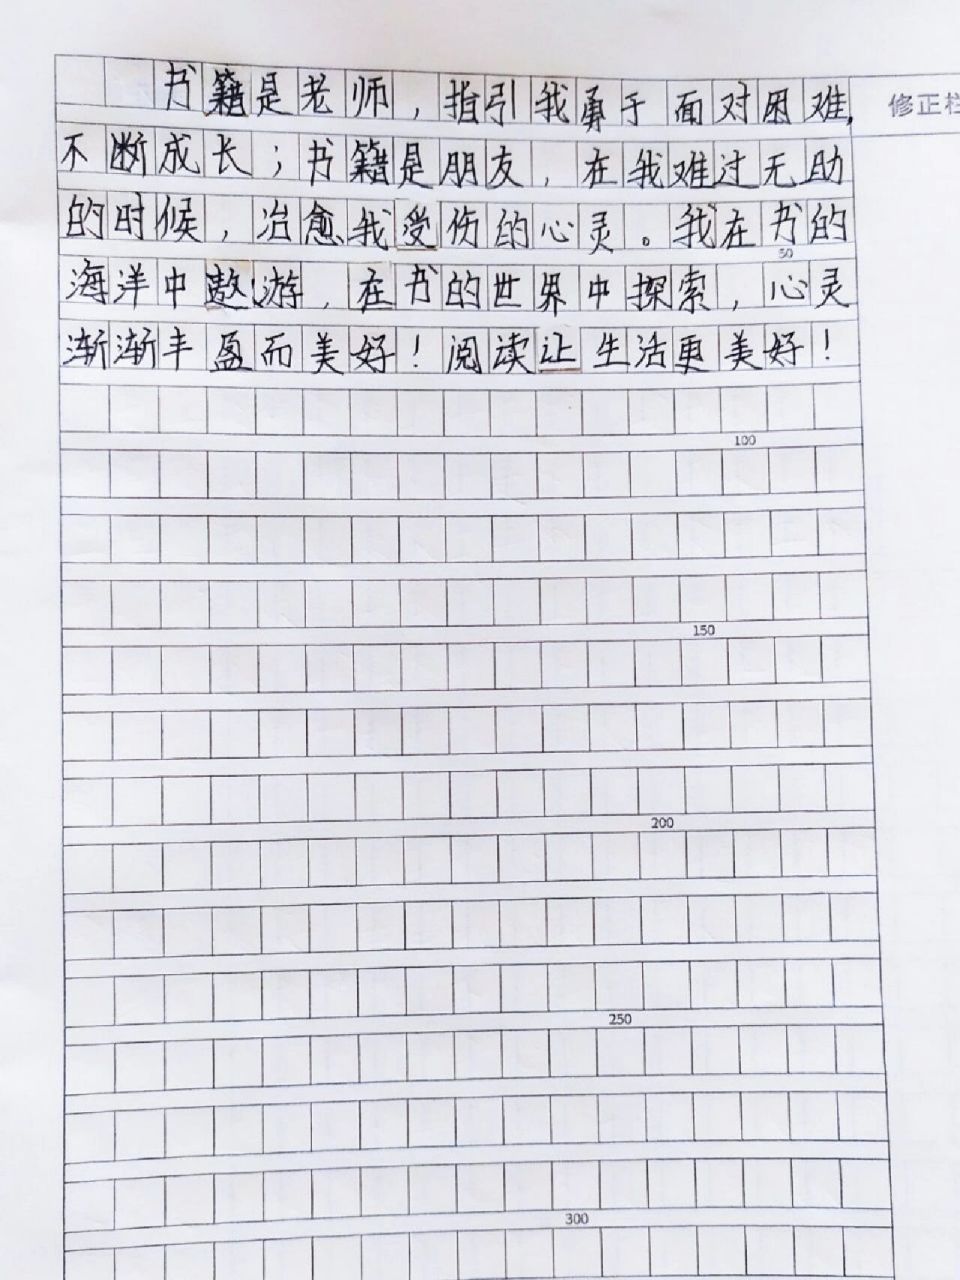 书籍是老师，指引我勇于面对困难，
修正栏
不断成长；书籍是朋友，在我难过无助
的时候，治愈我受伤的心灵。我在书的
50
海洋中遨游，在书的世界中探索，心灵
渐渐丰盈而美好！阅读让生活更美好！
100
150
200
250
300